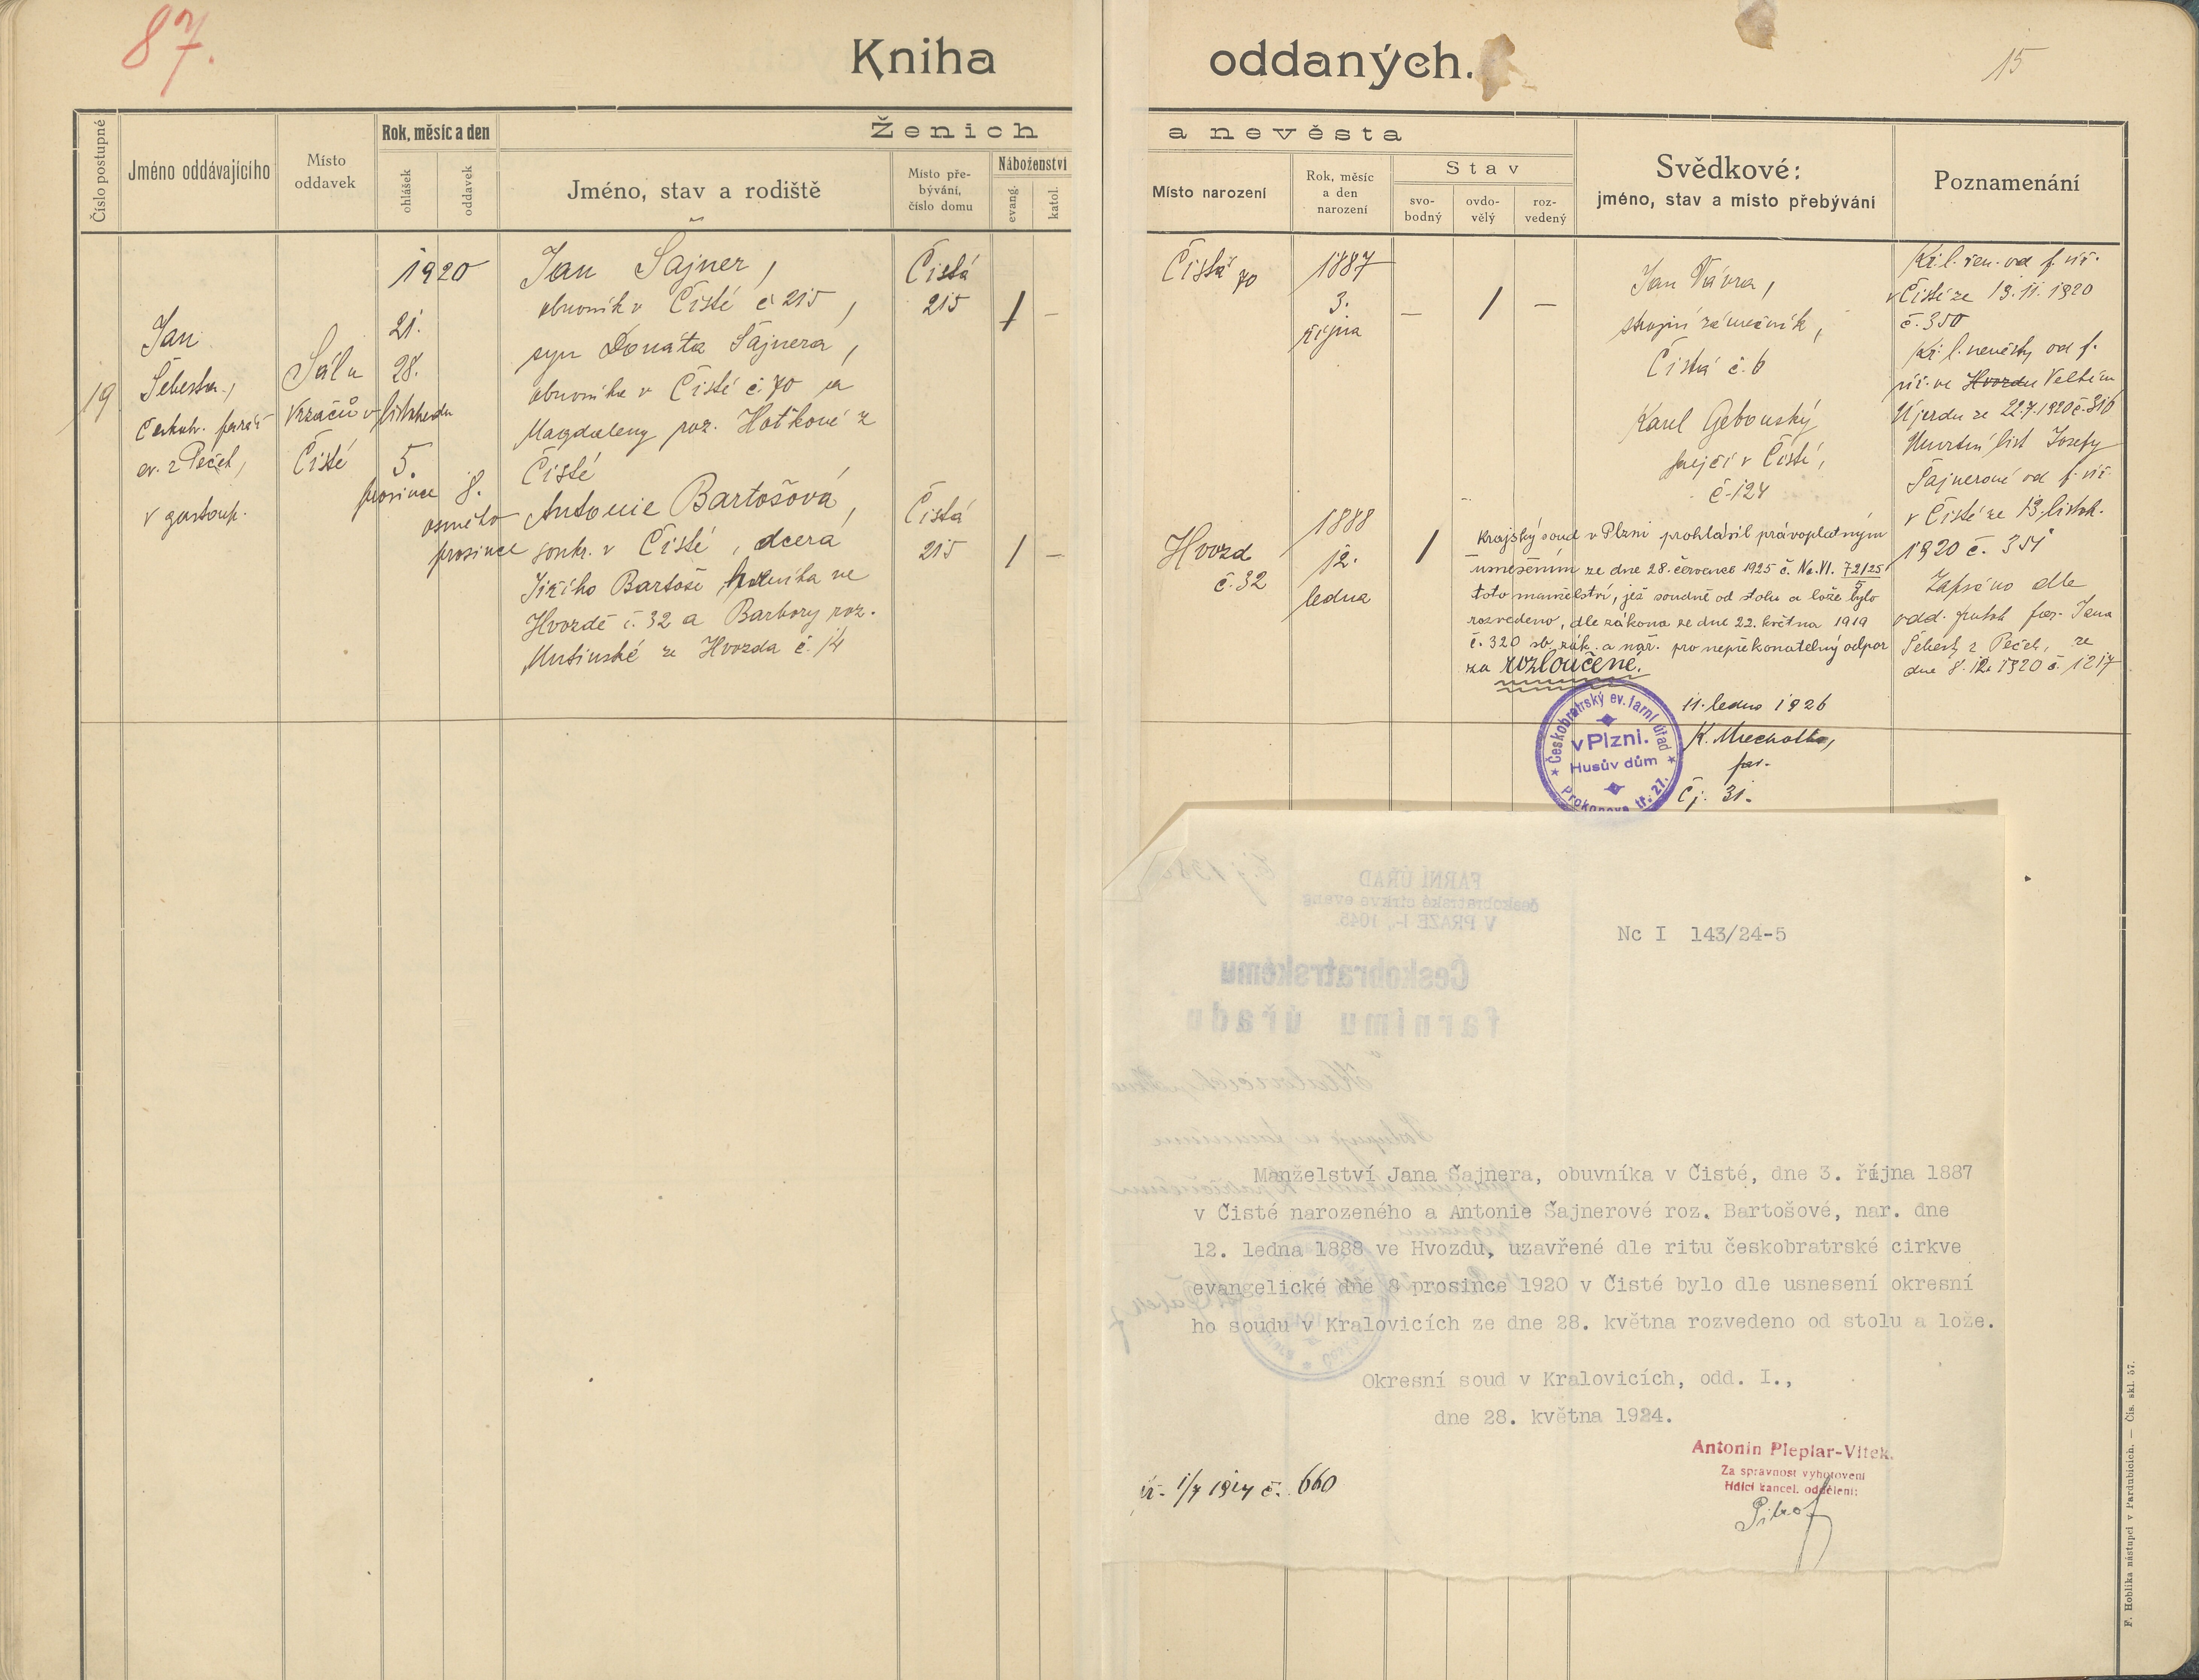 87.
Kniha oddaných.
15
Číslo postupné
Jméno oddávajícího
Místo oddavek
Rok, měsíc a den
ohlášek
oddavek
Ženich
a nevěsta
Jméno, stav a rodiště
Místo pře-
bývání,
číslo domu
Náboženství
evang.
katol.
Místo narození
Rok, měsíc
a den
narození
Stav
svo-
bodný
ovdo-
vělý
roz-
vedený
Svědkové:
jméno, stav a místo přebývání
Poznamenání
19
Jan
Šebesta,
ev. z Peček,
v zastoup.
Sál u
Vrzačů v
Čisté
1920
21.
28.
listopadu
5.
prosince
8.
osmého
prosince
Jan Šajner,
obuvník v Čisté č 215,
syn Donáta Šajnera,
obuvníka v Čisté č. 70 a
Magdaleny roz. Hotkové z
Čisté
Antonie Bartošová,
soukr. v Čisté, dcera
Jiřího Bartoše ve
Hvozdě č. 32 a Barbory roz.
ze Hvozda č. 14
Čistá
215
/ –
Čistá
215
/ –
Čistá 70
1887
3.
října
– / –
Hvozd
č. 32
1888
12.
ledna
/
Jan Vávra,
strojní zámečník,
Čistá č. 6
Karel Gebouský
krejčí v Čisté,
č. 124
Kř. l. žen. od f. úř.
v Čisté ze 13. 11. 1920
č. 350
Kř. l. nevěsty od f.
úř. ve Hvozdu Velkém
Újezdu ze 22.7.1920 č. 316
Úmrtní list Josefy
Šajnerové od f. úř.
v Čisté ze 13. listop.
1920 č. 351
Zapsáno dle
odd. protok. far. Jana
Šebesty z Peček, ze
dne 8. 12. 1920 č. 1217
Krajský soud v Plzni prohlásil právoplatným
usnesením ze dne 28. července 1925 č. Nc. VI. 72/25/5
toto manželství, jež soudně od stolu a lože bylo
rozvedeno, dle zákona ze dne 22. května 1919
č. 320 sb. zák. a nař. pro nepřekonatelný odpor
za rozloučené.
11. ledna 1926
far.
Čj. 31.
Českobratrský ev. farní úřad
v Plzni.
Husův dům
Prokopova tř. 21.
FARNÍ ÚŘAD
českobratrské církve evang
V PRAZE I-, 1045.
Českobratrskému
farnímu úřadu
Nc I 143/24-5
Manželství Jana Šajnera, obuvníka v Čisté, dne 3. října 1887
v Čisté narozeného a Antonie Šajnerové roz. Bartošové, nar. dne
12. ledna 1888 ve Hvozdu, uzavřené dle ritu českobratrské cirkve
evangelické dne 8 prosince 1920 v Čisté bylo dle usnesení okresní
ho soudu v Kralovicích ze dne 28. května rozvedeno od stolu a lože.
Okresní soud v Kralovicích, odd. I.,
dne 28. května 1924.
Antonín Pleplar-Vítek.
Za správnost vyhotovení
řídící kancel. oddělení:
1/7 1924 č. 660
F. Hoblíka nástupci v Pardubicích. — Čís. skl. 57.